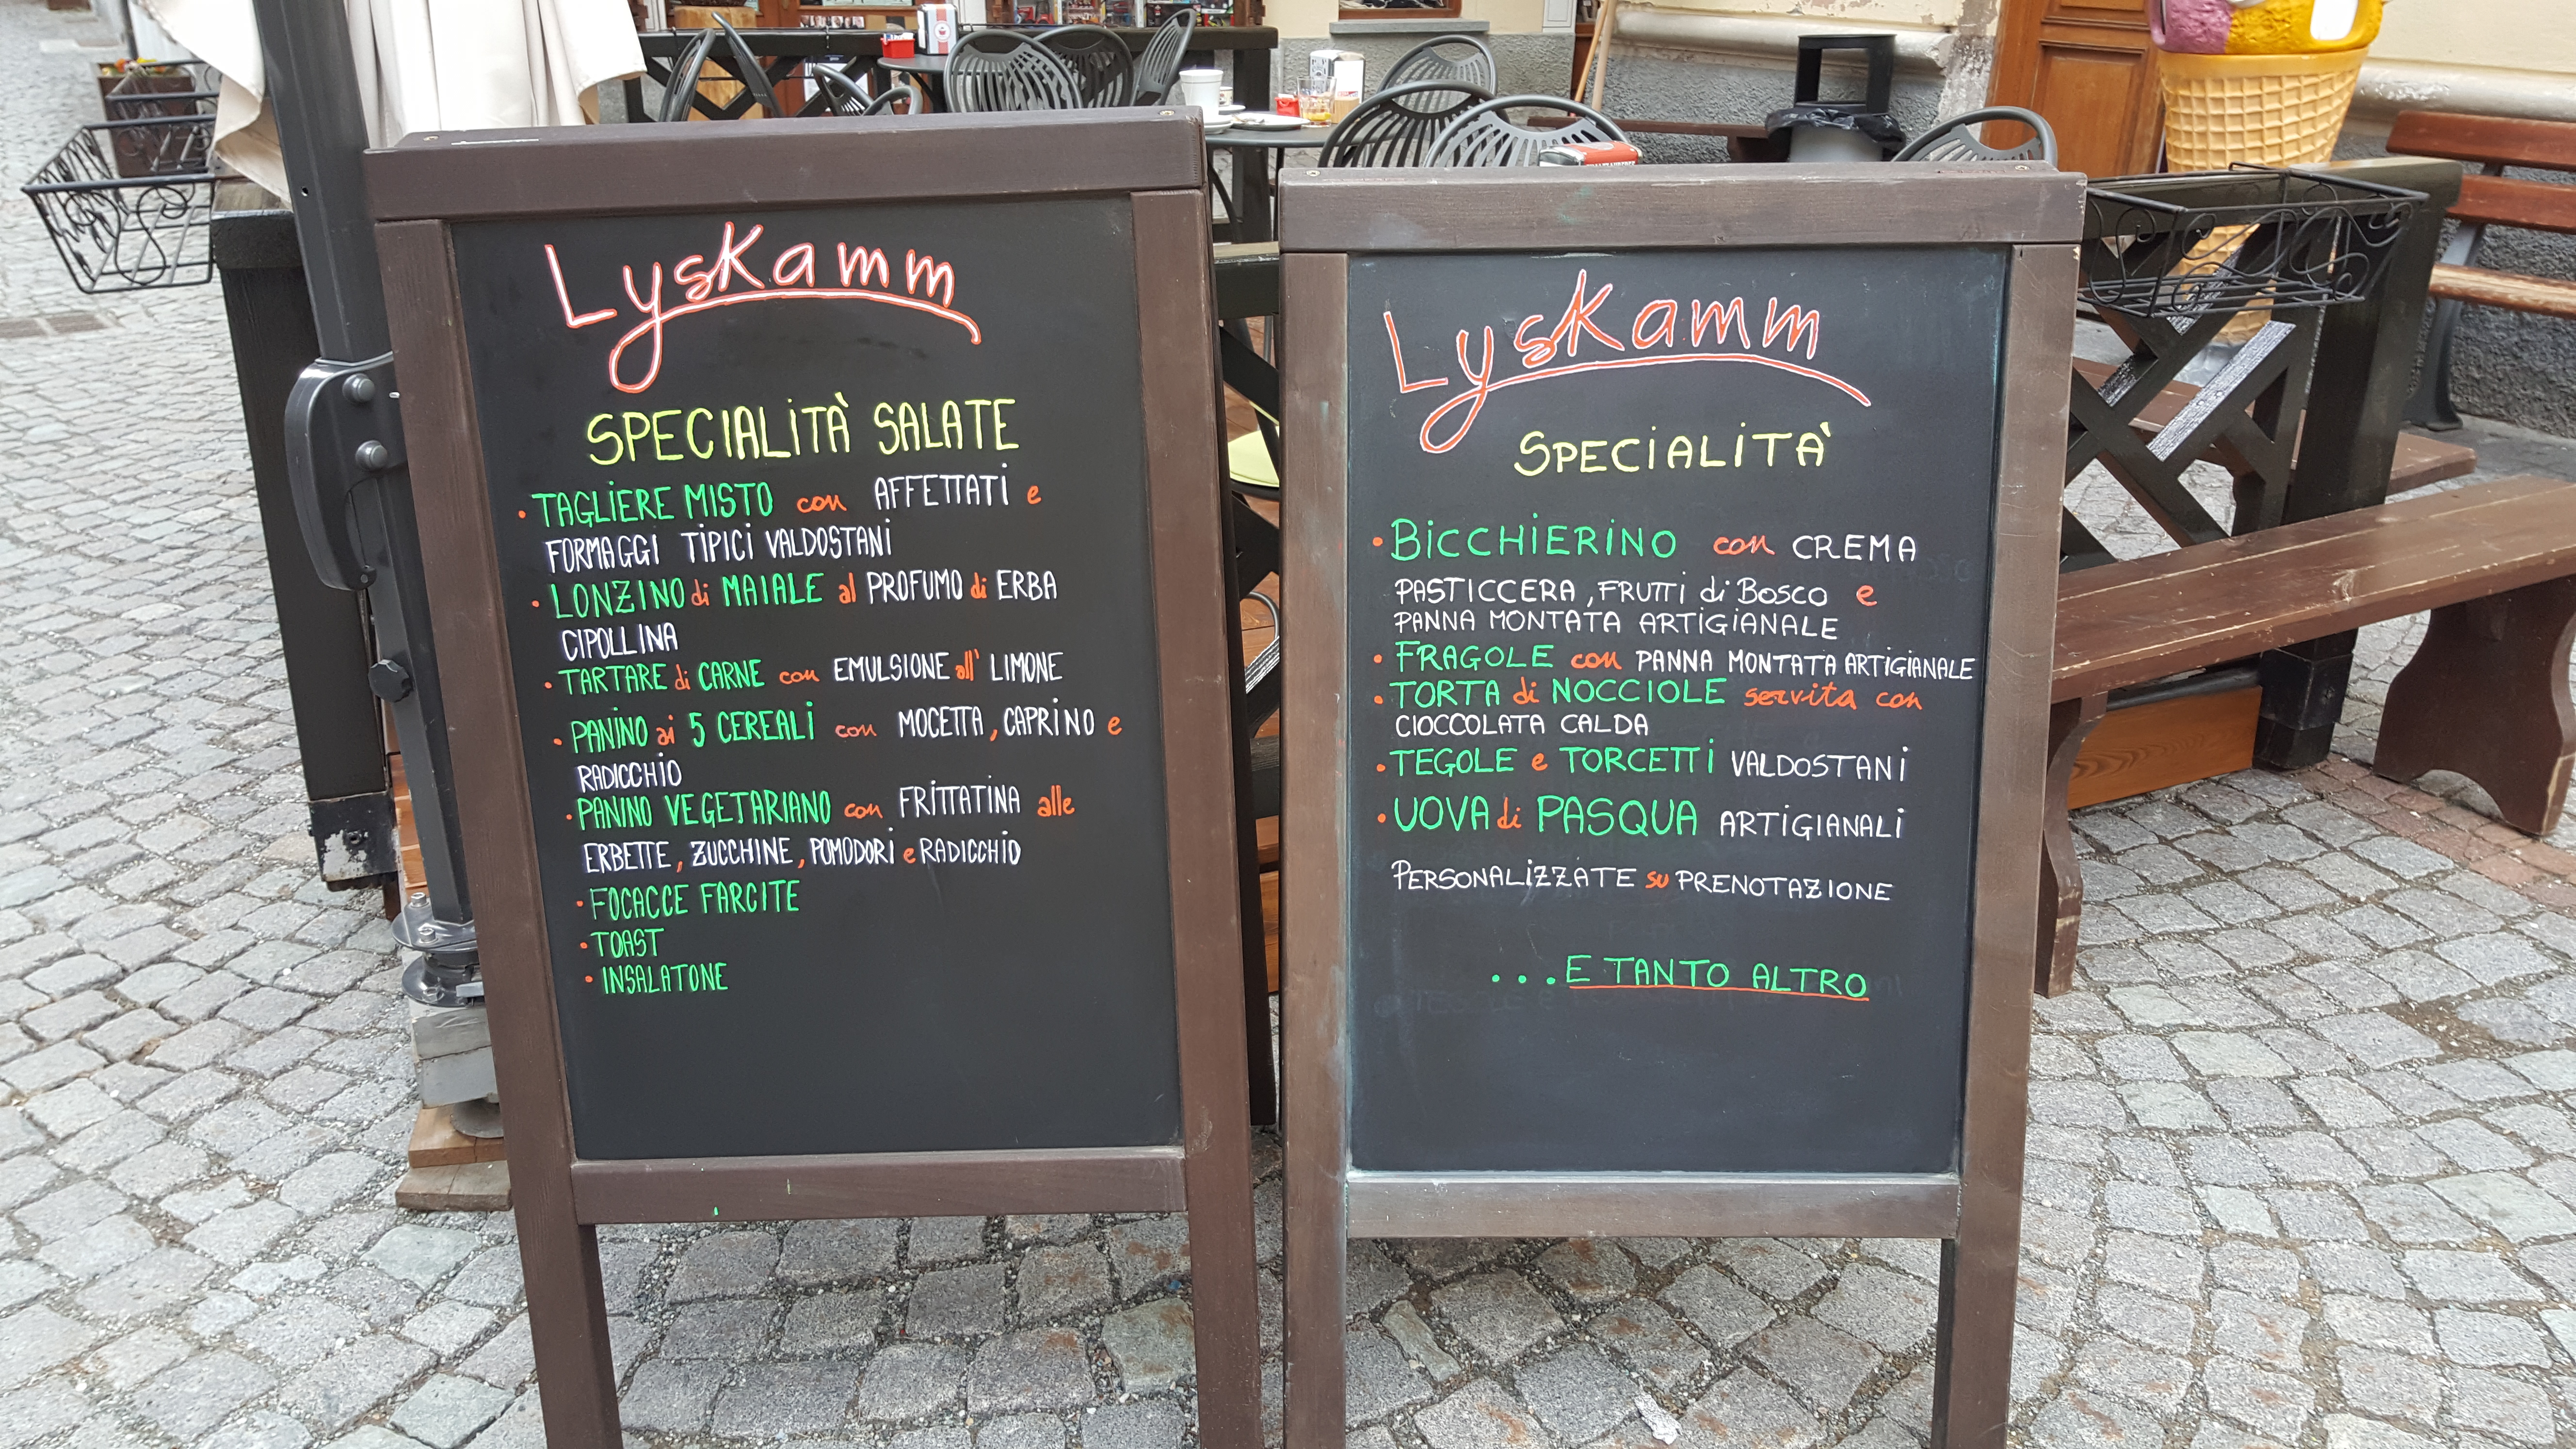 Lyskamm
SPECIALITÀ SALATE
• TAGLIERE MISTO con AFFETTATI e
FORMAGGI TIPICI VALDOSTANI
• LONZINO di MAIALE al PROFUMO di ERBA
CIPOLLINA
• TARTARE di CARNE con EMULSIONE all' LIMONE
• PANINO ai 5 CEREALI con MOCETTA, CAPRINO e
RADICCHIO
• PANINO VEGETARIANO con FRITTATINA alle
ERBETTE, ZUCCHINE, POMODORI e RADICCHIO
• FOCACCE FARCITE
• TOAST
• INSALATONE
Lyskamm
SPECIALITÀ
• BICCHIERINO con CREMA
PASTICCERA, FRUTTI di BOSCO e
PANNA MONTATA ARTIGIANALE
• FRAGOLE con PANNA MONTATA ARTIGIANALE
• TORTA di NOCCIOLE servita con
CIOCCOLATA CALDA
• TEGOLE e TORCETTI VALDOSTANI
• UOVA di PASQUA ARTIGIANALI
PERSONALIZZATE su PRENOTAZIONE
...E TANTO ALTRO